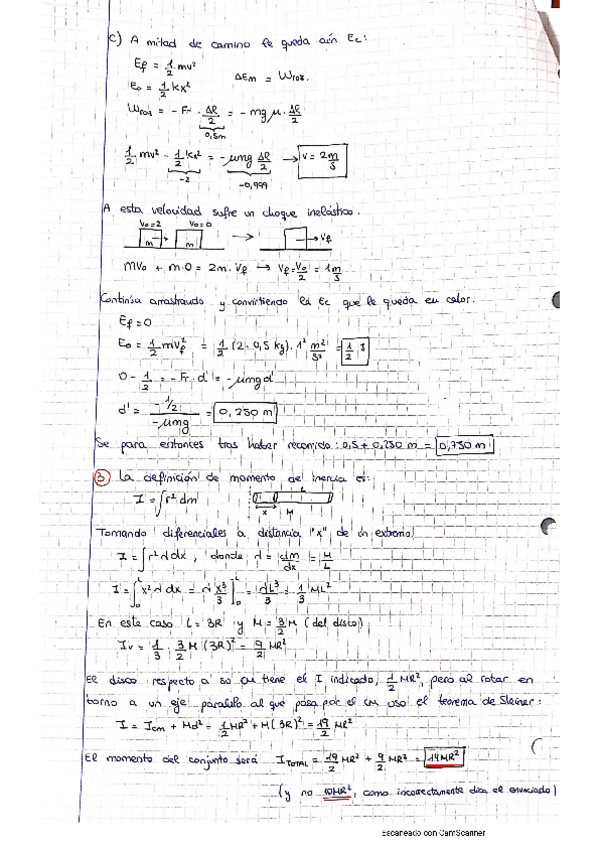 c) A mitad de camino le queda aún Ec:
Ef = 1/2 mv²
E₀ = 1/2 kx²
ΔEm = Wroz.
Wroz = - Fr · Δl/2 = - mg μ · Δl/2
0,5m
1/2 mv² - 1/2 kx² = - μmg Δl/2 → v = 2 m/s
-2
-0,999
A esta velocidad sufre un choque inelástico.
V₀=2 V₀=0
m m → Vf
mV₀ + m·0 = 2m · Vf → Vf = V₀/2 = 1 m/s
Continúa arrastrando y convirtiendo la Ec que le queda en calor.
Ef = 0
E₀ = 1/2 mVf² = 1/2 (2·0,5 kg) · 1² m²/s² = 1/2 J
0 - 1/2 = - Fr · d' = - μmg d'
d' = -1/2 / -μmg = 0,250 m
Se para entonces tras haber recorrido: 0,5 + 0,250 m = 0,750 m
3 La definición de momento de inercia es:
I = ∫ r² dm
L
x M
Tomando diferenciales a distancia "x" de un extremo
I = ∫ r² λ dx , donde λ = dm/dx = M/L
I = ∫₀ᴸ x² λ dx = λ x³/3 |₀ᴸ = λL³/3 = 1/3 ML²
En este caso L = 3R y M = 3/2 M (del disco)
Iv = 1/3 · 3/2 M (3R)² = 9/2 MR²
El disco respecto a su CM tiene el I indicado, 1/2 MR², pero al rotar en
torno a un eje paralelo al que pasa por el CM uso el teorema de Steiner:
I = Icm + Md² = 1/2 MR² + M(3R)² = 19/2 MR²
El momento del conjunto será I TOTAL = 19/2 MR² + 9/2 MR² = 14MR²
(y no 10MR², como incorrectamente dice el enunciado)
Escaneado con CamScanner